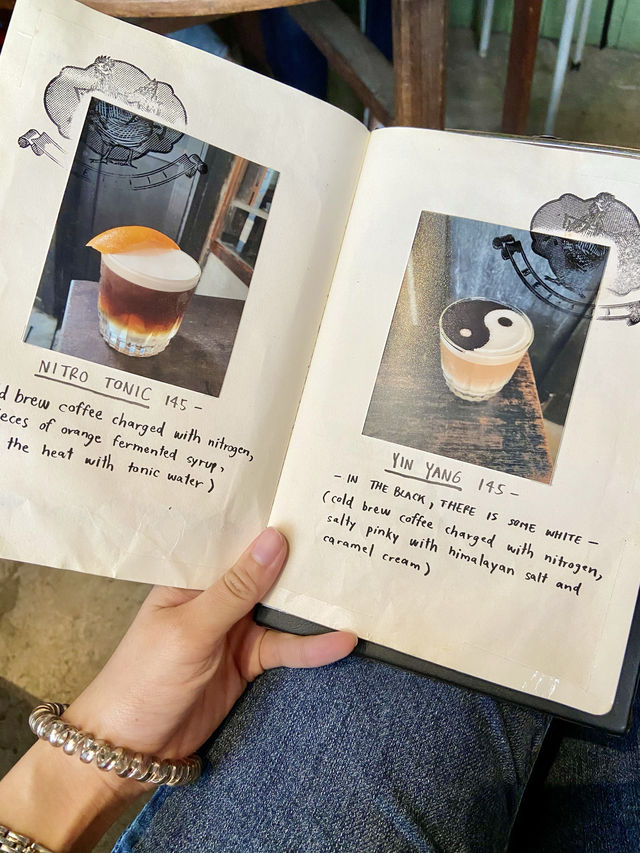 NITRO TONIC 145 -
brew coffee charged with nitrogen,
of orange fermented syrup,
the heat with tonic water)
YIN YANG 145 -
- IN THE BLACK, THERE IS SOME WHITE -
(cold brew coffee charged with nitrogen,
salty pinky with himalayan salt and
caramel cream)